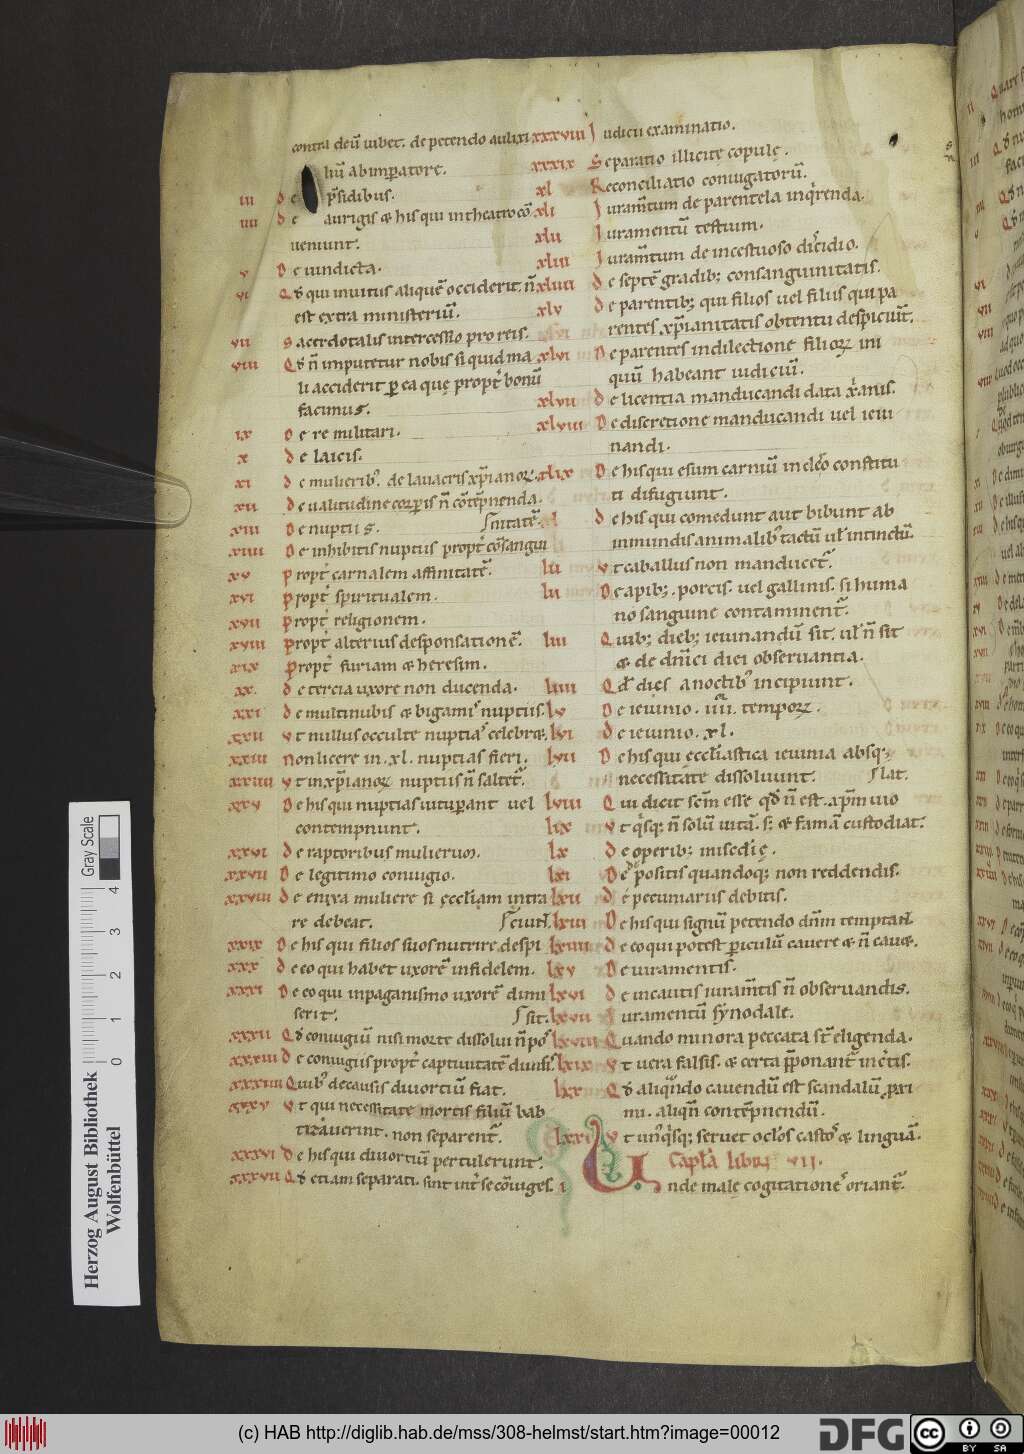 contra deū uibet. de petendo auxi
liū ab imꝑatore.
iii De p̄sidibus.
iiii De aurigis & his qui in theatro cō
ueniunt.
v De uindicta.
vi Qđ qui inuitus aliquē occiderit. n̄
est extra ministeriū.
vii Sacerdotalis intercessio pro reis.
viii Qđ n̄ imputetur nobis si quid ma
li acciderit ꝑ ea quę propt̾ bonū
facimus.
ix De re militari.
x De laicis.
xi De mulierib᾿. de lauacris xp̄ianoꝝ.
xii De ualitudine corꝑis n̄ cōtēpnenda.
xiii De nuptiis. ſnitatē.
xiiii De inhibitis nuptiis propt̾ cōsangui
xv Propt̾ carnalem affinitatē.
xvi Propt̾ spiritualem.
xvii Propt̾ religionem.
xviii Propt̾ alterius desponsationē.
xix Propt̾ furiam & heresim.
xx De tercia uxore non ducenda.
xxi De multinubis & bigami᾿ nuptiis.
xxii Vt nullus occulte nuptia᾿ celebr&.
xxiii Non licere in .xl. nuptias fieri.
xxiiii Vt in xp̄ianoꝝ nuptiis n̄ saltet̾.
xxv De his qui nuptias uituꝑant uel
contempnunt.
xxvi De raptoribus mulierum.
xxvii De legitimo coniugio.
xxviii De enixa muliere si ęccl̄iam intra
re debeat. ſciunt̾.
xxix De his qui filios suos nutrire despi
xxx De eo qui habet uxorē infidelem.
xxxi De eo qui in paganismo uxorē dimi
serit. ſsit.
xxxii Qđ coniugiū nisi morte dissolui n̄ pos
xxxiii De coniugiis propt̾ captiuitatē diuisis.
xxxiiii Quib᾿ de causis diuortiū fiat.
xxxv Vt qui necessitate mortis filiū bab
tizauerint. non separent̾.
xxxvi De his qui diuortiū pertulerunt.
xxxvii Qđ etiam separati. sint int̾ se cōiuges.
xxxviii Iudicii examinatio.
xxxix Separatio illicitę copulę.
xl Reconciliatio coniugatorū.
xli Iuram̄tum de parentela inq̾renda.
xlii Iuramentū testium.
xliii Iuram̄tum de incestuoso discidio.
xliiii De septē gradib; consanguinitatis.
xlv De parentib; qui filios uel filiis qui pa
rentes xp̄ianitatis obtentu despiciūt.
xlvi De parentes in dilectione filioꝝ ini
quiū habeant iudiciū.
xlvii De licentia manducandi data xp̄ianis.
xlviii De discretione manducandi uel ieiu
nandi.
xlix De his qui esum carniū in cl̄co constitu
ti difugiunt.
l De his qui comedunt aut bibunt ab
inmundis animalib᾿ tactū uł intinctū.
li Vt caballus non manducet̾.
lii De apib;. porcis. uel gallinis. si huma
no sanguine contaminent̾.
liii Quib; dieb; ieiunandū sit. uł n̄ sit
& de dn̄ici diei obseruantia.
liiii Qđ dies a noctib᾿ incipiunt.
lv De ieiunio .iiii. temporꝝ.
lvi De ieiunio .xl.
lvii De his qui eccl̄iastica ieiunia absq;
necessitate dissoluunt. ſlat.
lviii Qui dicit sem̄ esse qđ n̄ est. xp̄m uio
lix Vt q̾sq; n̄ solū uitā. s; & famā custodiat.
lx De operib; mis̄cdię.
lxi De depositis quandoq; non reddendis.
lxii De pecuniariis debitis.
lxiii De his qui signū petendo dn̄m temptant̾.
lxiiii De eo qui potest ꝑiculū cauere & n̄ cau&.
lxv De iuramentis.
lxvi De incautis iuram̄tis n̄ obseruandis.
lxvii Iuramentū synodale.
lxviii Quando minora peccata st̄ eligenda.
lxix Vt uera falsis. & certa p̄ponant̾ inc̾tis.
lxx Qđ aliquando cauendū est scandalū ꝓxi
mi. aliqn̄ contēpnendū.
lxxi Vt unq̾sq; seruet oclos castos & linguā.
Capl̄a libri VII.
i Vnde malę cogitatione᾿ oriant̾.
Herzog August Bibliothek
Wolfenbüttel
Gray Scale
0 1 2 3 4
(c) HAB http://diglib.hab.de/mss/308-helmst/start.htm?image=00012
DFG
cc BY SA